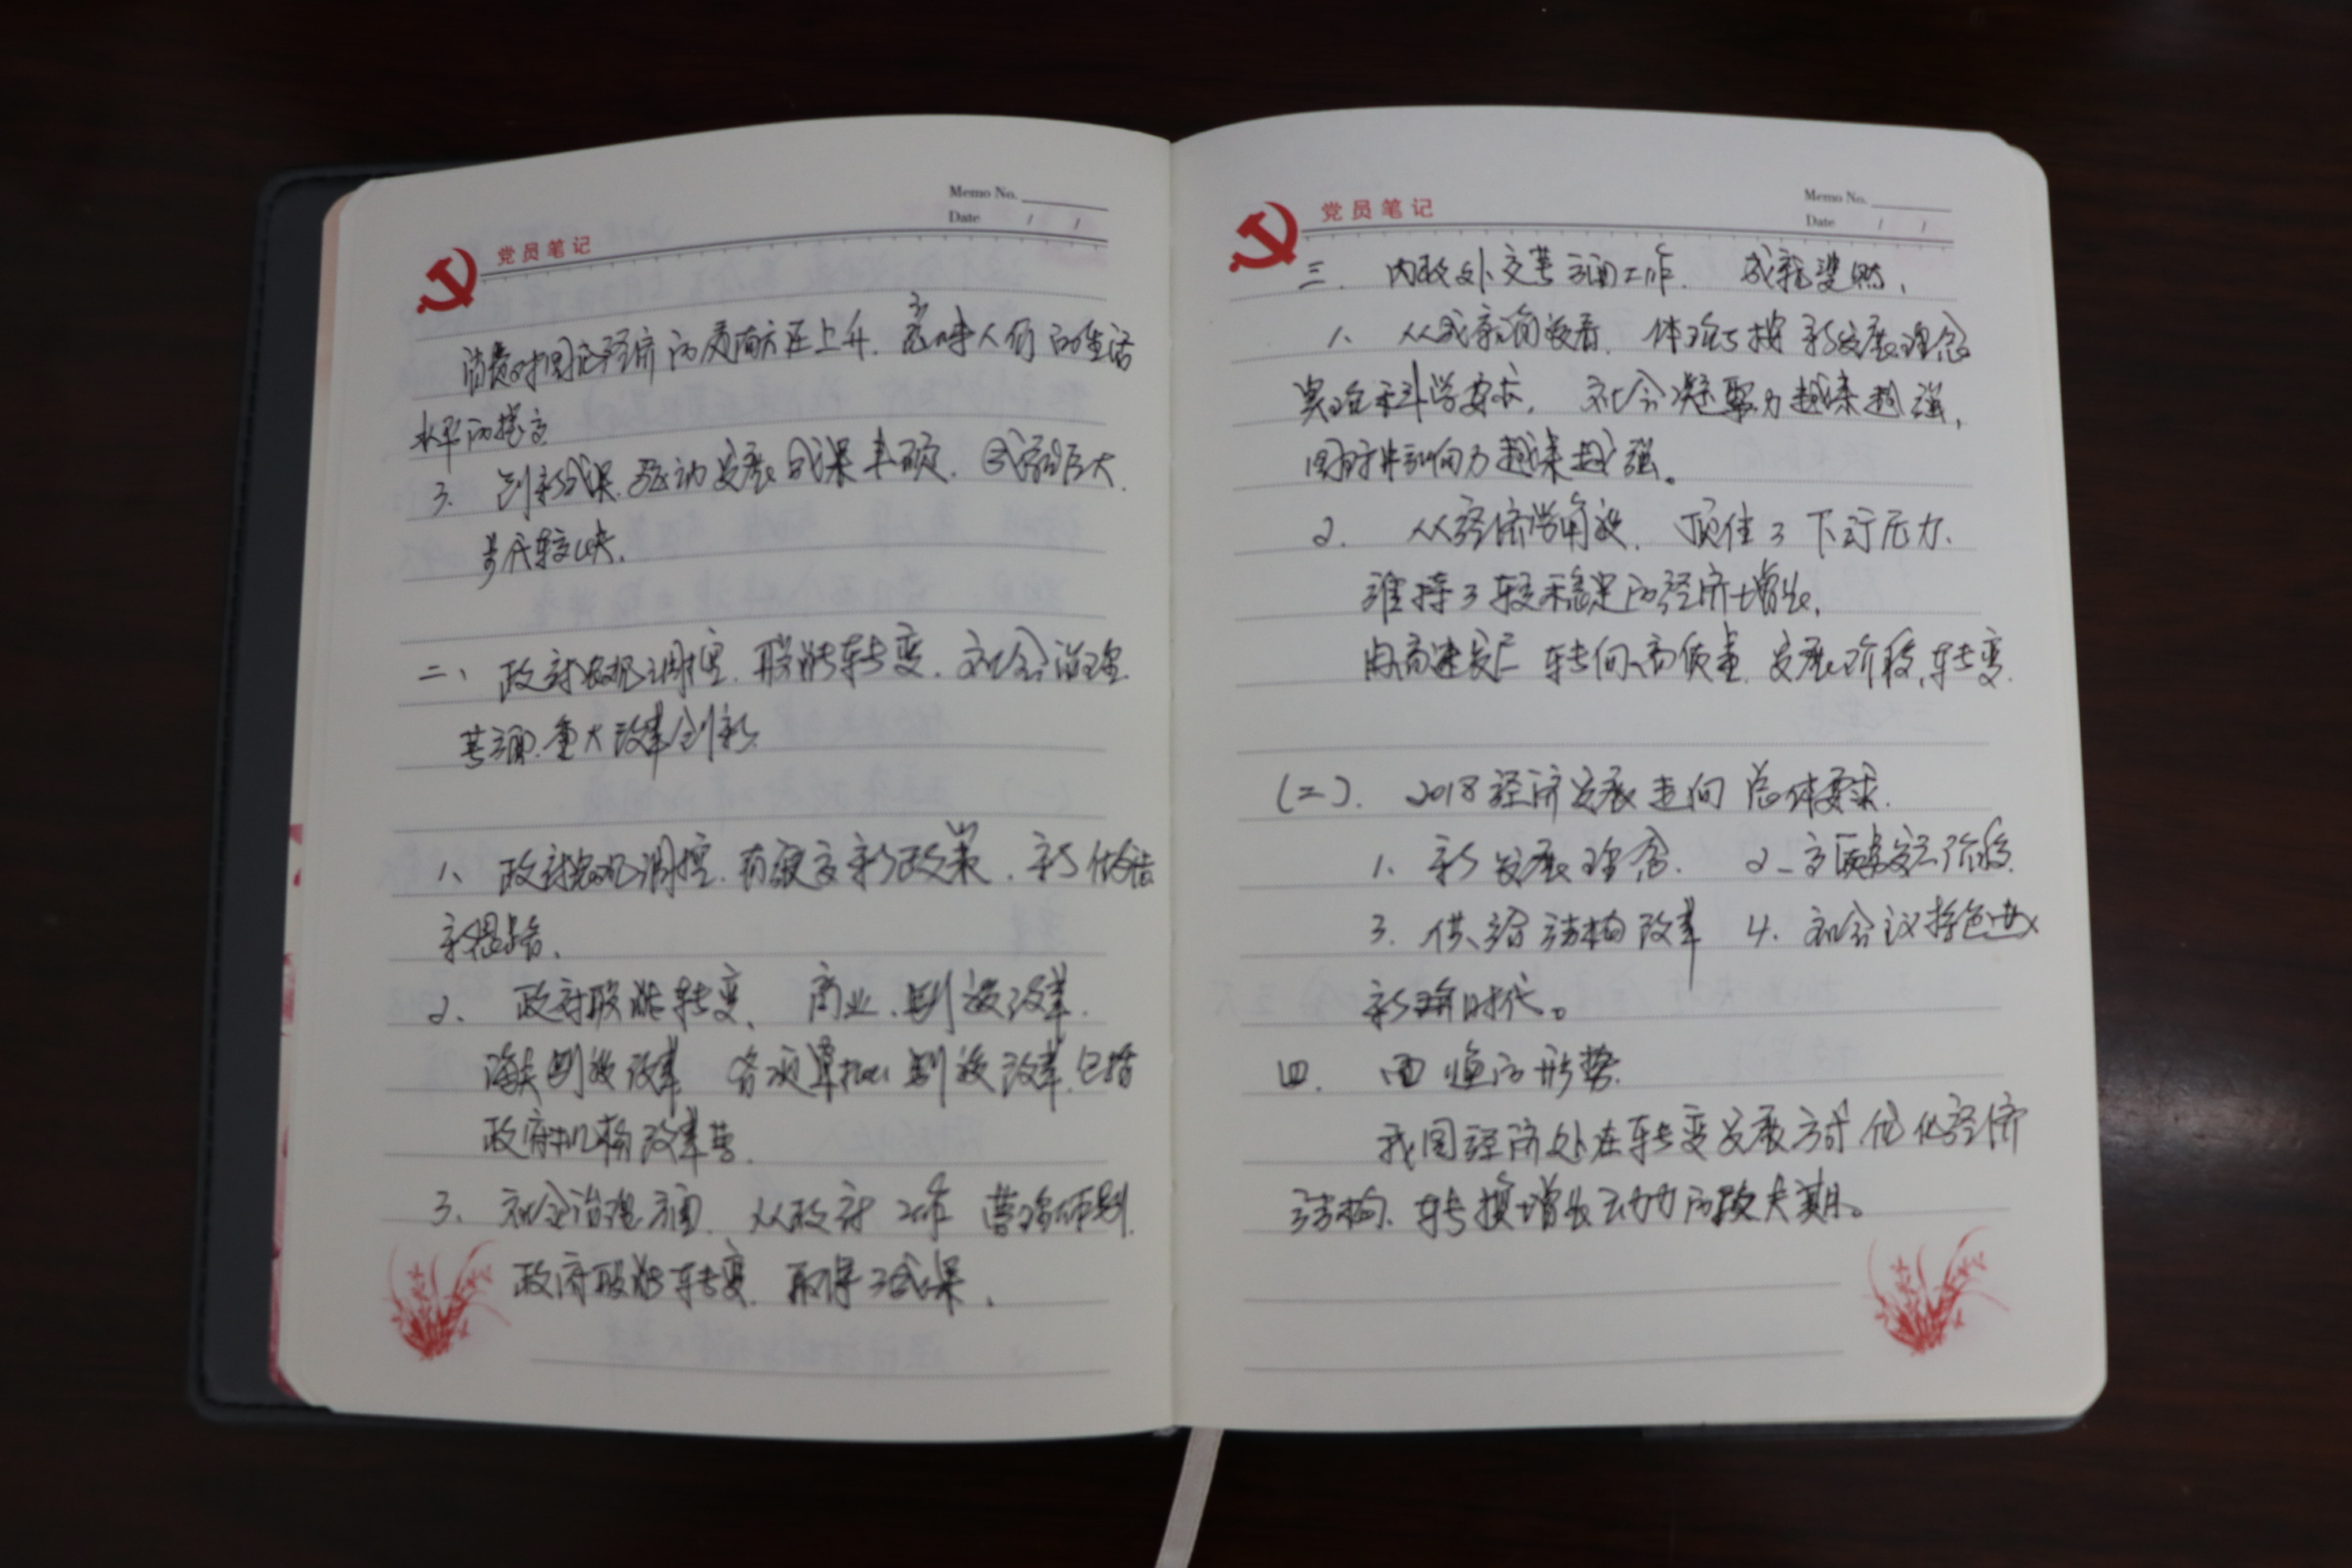 党员笔记
Memo No.
Date / /
消费对国民经济的贡献在上升.意味人们的生活
水平的提高
3. 创新成果.驱动发展成果丰硕.成就巨大.
步伐较快.
二、政府宏观调控.职能转变.社会治理.
等方面.重大改革创新.
1、政府宏观调控.有很多新政策.新
新思路.
2、政府职能转变、商业.制度改革.
海关制度改革 各项 制度改革.包括
政府机构改革等.
3、社会治理方面.从政府工作
政府职能转变.取得了成果.
党员笔记
Memo No.
Date / /
三. 内政外交等方面工作. 成就斐然.
1、从成就角度看. 体现与按新发展理念
实现科学要求, 社会凝聚力越来越强,
国际影响力越来越强。
2. 从经济学角度. 顶住了下行压力.
维持了较稳定的经济增长,
由高速发展转向高质量.发展阶段,转变.
(二). 2018经济发展走向总体要求.
1. 新发展理念. 2. 阶段.
3. 供给结构改革 4. 社会主义特色
新时代。
四. 面临的形势.
我国经济处在转变发展方式优化经济
结构、转换增长动力的攻关期。